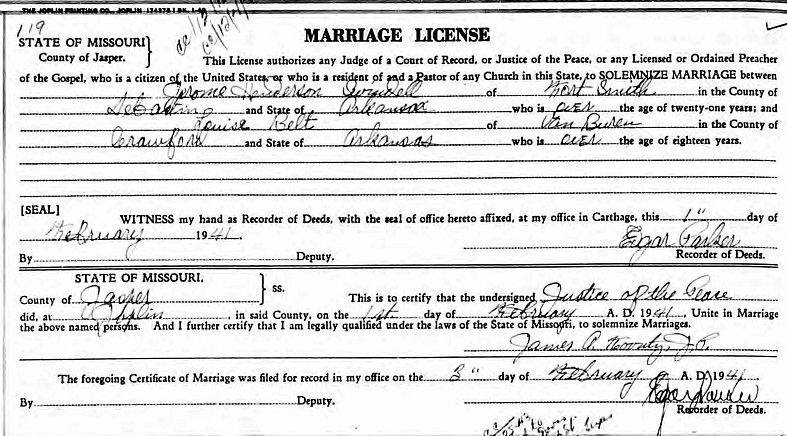 THE JOPLIN PRINTING CO., JOPLIN
119
MARRIAGE LICENSE
STATE OF MISSOURI
County of Jasper.
This License authorizes any Judge of a Court of Record, or Justice of the Peace, or any Licensed or Ordained Preacher
of the Gospel, who is a citizen of the United States, or who is a resident of and a Pastor of any Church in this State, to SOLEMNIZE MARRIAGE between
Jerome Henderson of Fort Smith in the County of
Sebastian and State of Arkansas who is over the age of twenty-one years; and
Louise Belt of Van Buren in the County of
Crawford and State of Arkansas who is over the age of eighteen years.
[SEAL]
WITNESS my hand as Recorder of Deeds, with the seal of office hereto affixed, at my office in Carthage, this 1" day of
February 1941
Egar Parker
By Deputy. Recorder of Deeds.
STATE OF MISSOURI,
County of Jasper ss. This is to certify that the undersigned Justice of the Peace
did, at Joplin, in said County, on the 1st day of February A. D. 1941, Unite in Marriage
the above named persons. And I further certify that I am legally qualified under the laws of the State of Missouri, to solemnize Marriages.
James A. J.P.
The foregoing Certificate of Marriage was filed for record in my office on the 3" day of February A. D. 1941
By Deputy. Recorder of Deeds.